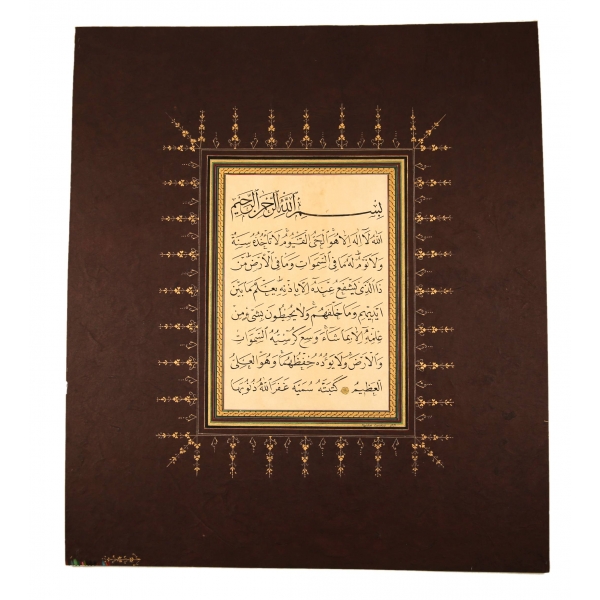 بِسْمِ اللهِ الرَّحْمٰنِ الرَّحِيْمِ
اَللهُ لَا اِلٰهَ اِلَّا هُوَ الْحَيُّ الْقَيُّومُ لَا تَأْخُذُهُ سِنَةٌ
وَلَا نَوْمٌ لَهُ مَا فِي السَّمٰوَاتِ وَمَا فِي الْاَرْضِ مَنْ
ذَا الَّذِي يَشْفَعُ عِنْدَهُ اِلَّا بِاِذْنِهِ يَعْلَمُ مَا بَيْنَ
اَيْدِيهِمْ وَمَا خَلْفَهُمْ وَلَا يُحِيطُونَ بِشَيْءٍ مِنْ
عِلْمِهِ اِلَّا بِمَا شَاءَ وَسِعَ كُرْسِيُّهُ السَّمٰوَاتِ
وَالْاَرْضَ وَلَا يَؤُدُهُ حِفْظُهُمَا وَهُوَ الْعَلِيُّ
الْعَظِيمُ كَتَبَتْهُ سُمَيَّه غَفَرَ اللهُ ذُنُوبَهَا